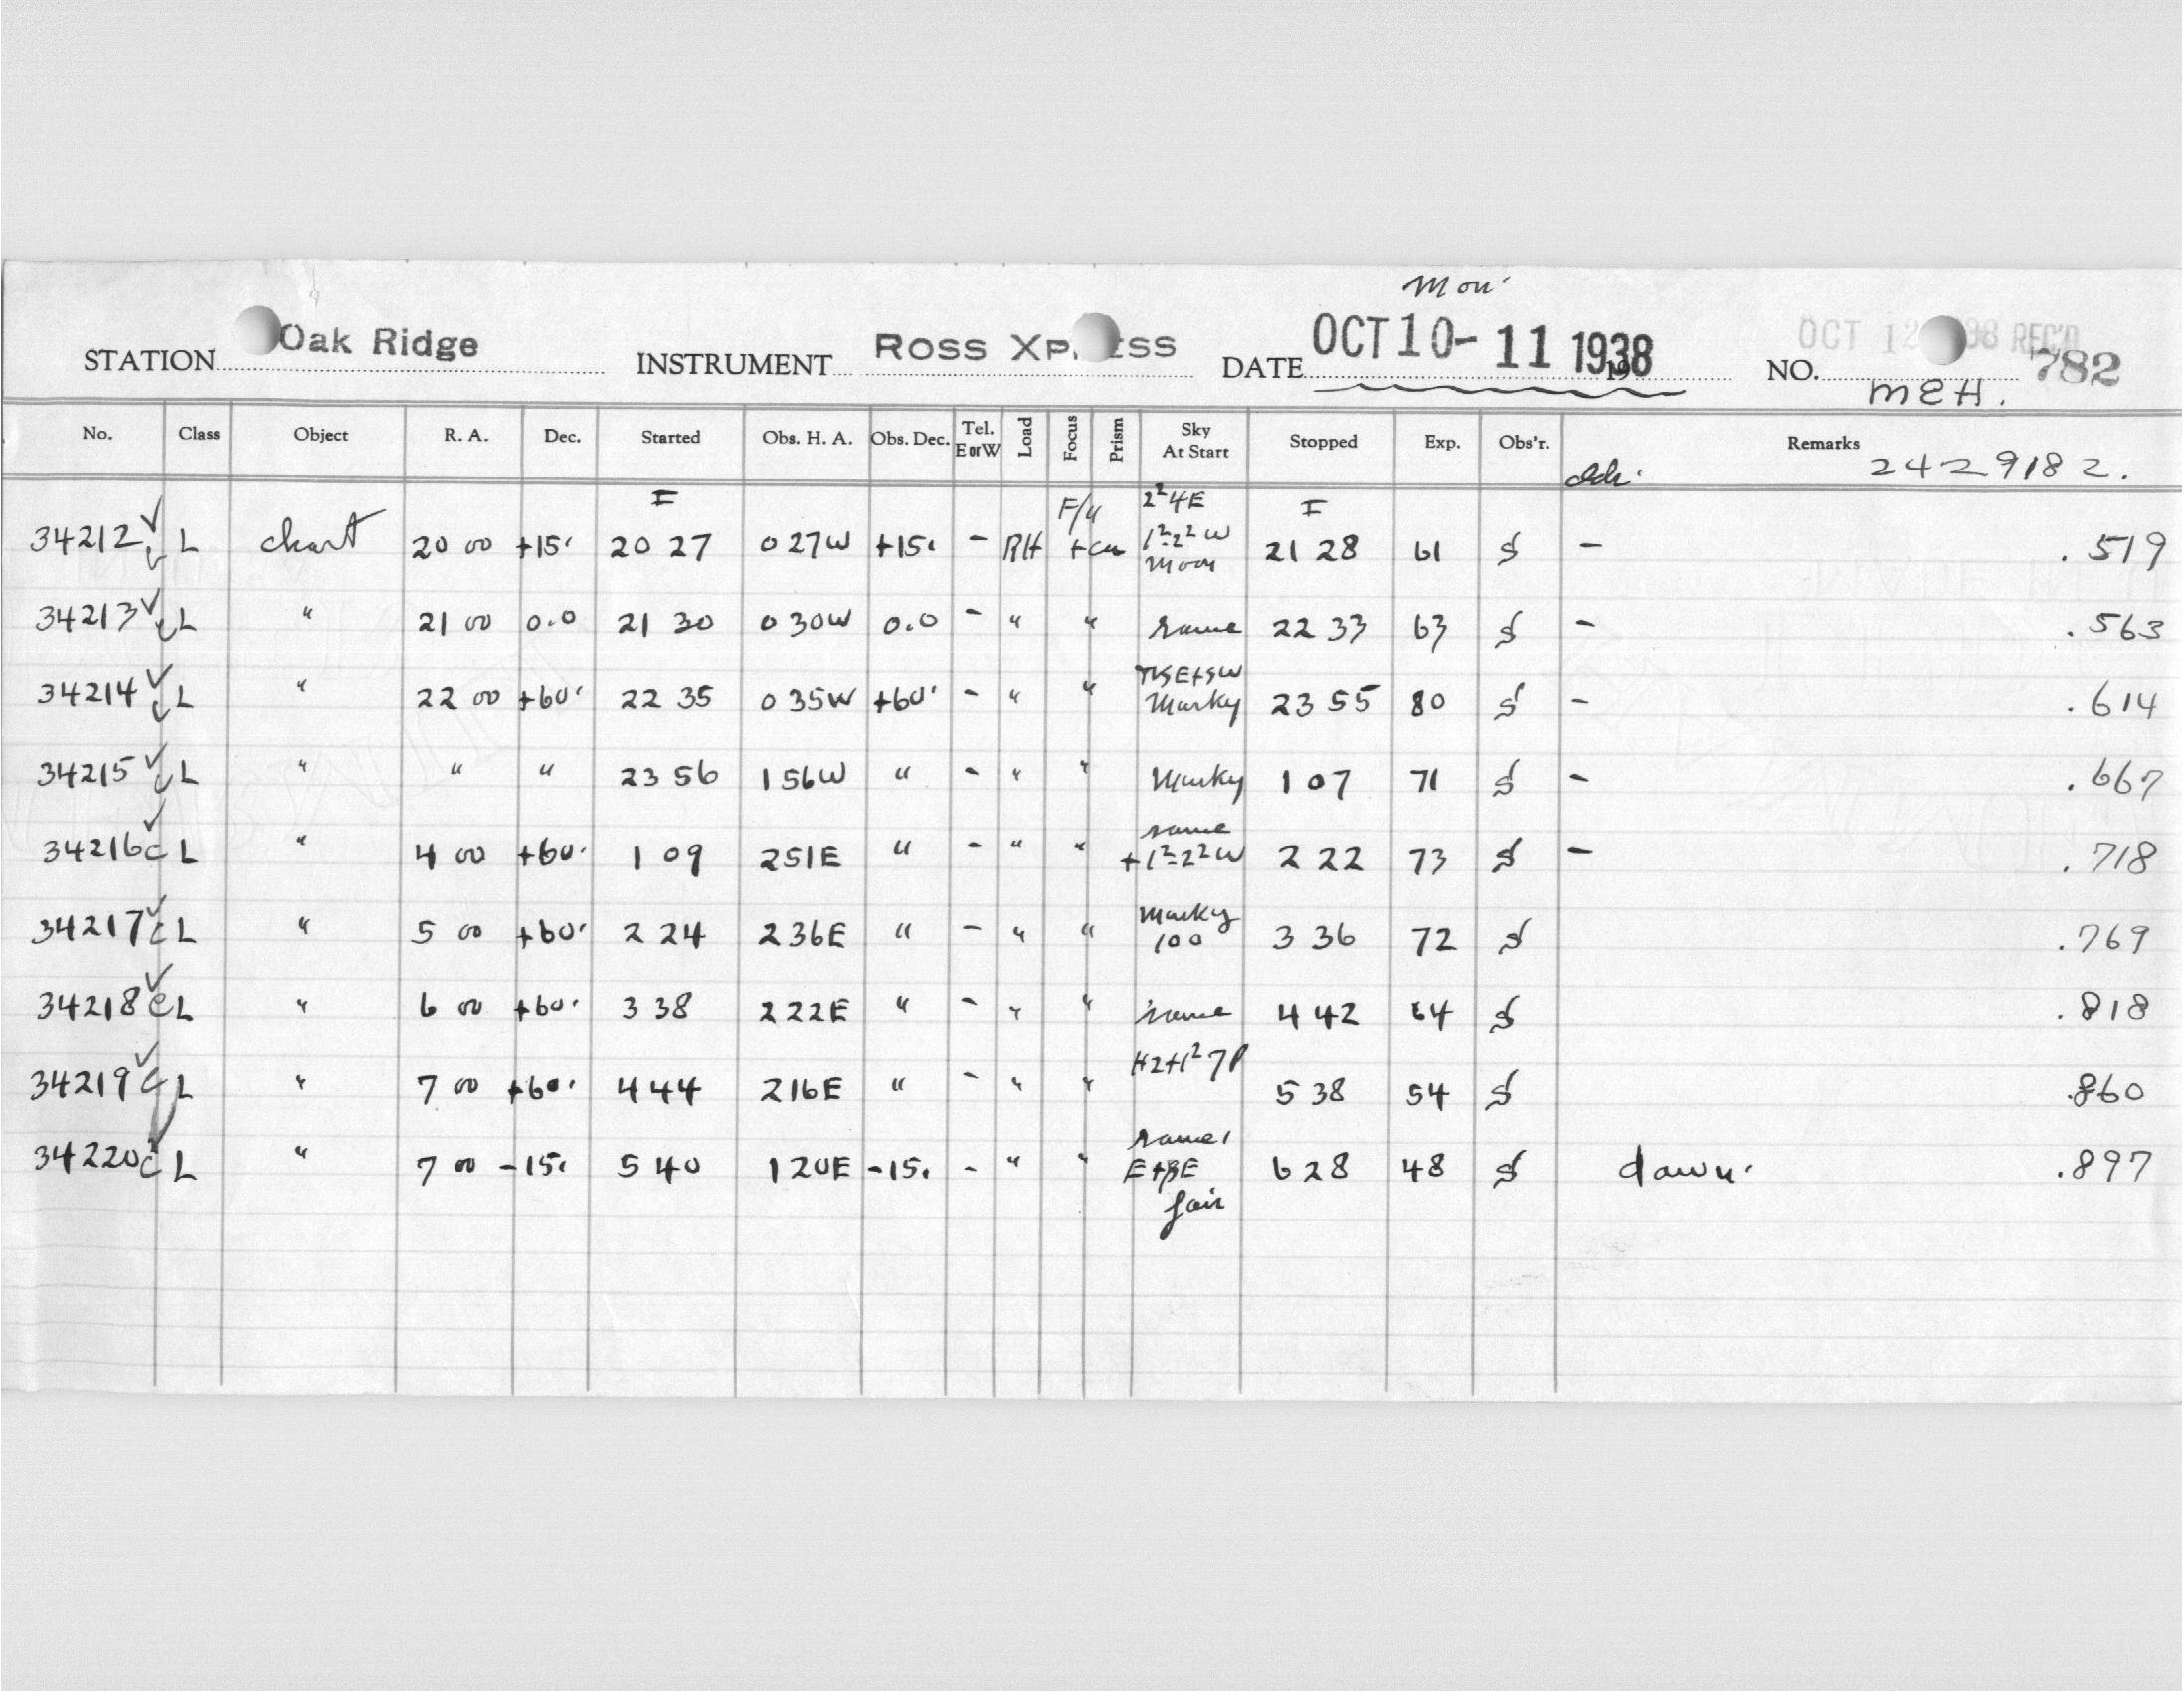 Mon.
OCT 12 1938 REC'D
STATION Oak Ridge INSTRUMENT ROSS XPRESS DATE OCT 10-11 1938 NO. 782
MEH.
No. Class Object R. A. Dec. Started Obs. H. A. Obs. Dec. Tel. E or W Load Focus Prism Sky At Start Stopped Exp. Obs'r. Remarks
2429182.
34212 L chart 20 00 +15. 20 27 0 27W +15. - RH 2²4E 1²-2²W moon 21 28 61 - .519
34213 L " 21 00 0.0 21 30 0 30W 0.0 - " " same 22 33 63 - .563
34214 L " 22 00 +60. 22 35 0 35W +60. - " " Murky 23 55 80 - .614
34215 L " " " 23 56 1 56W " - " " Murky 1 07 71 - .667
34216 c L " 4 00 +60. 1 09 2 51E " - " " same +1²-2²W 2 22 73 - .718
34217 c L " 5 00 +60. 2 24 2 36E " - " " Murky 100 3 36 72 .769
34218 c L " 6 00 +60. 3 38 2 22E " - " " same 4 42 64 .818
34219 c L " 7 00 +60. 4 44 2 16E " - " " 5 38 54 .860
34220 c L " 7 00 -15. 5 40 1 20E -15. - " " same, fair 6 28 48 dawn. .897